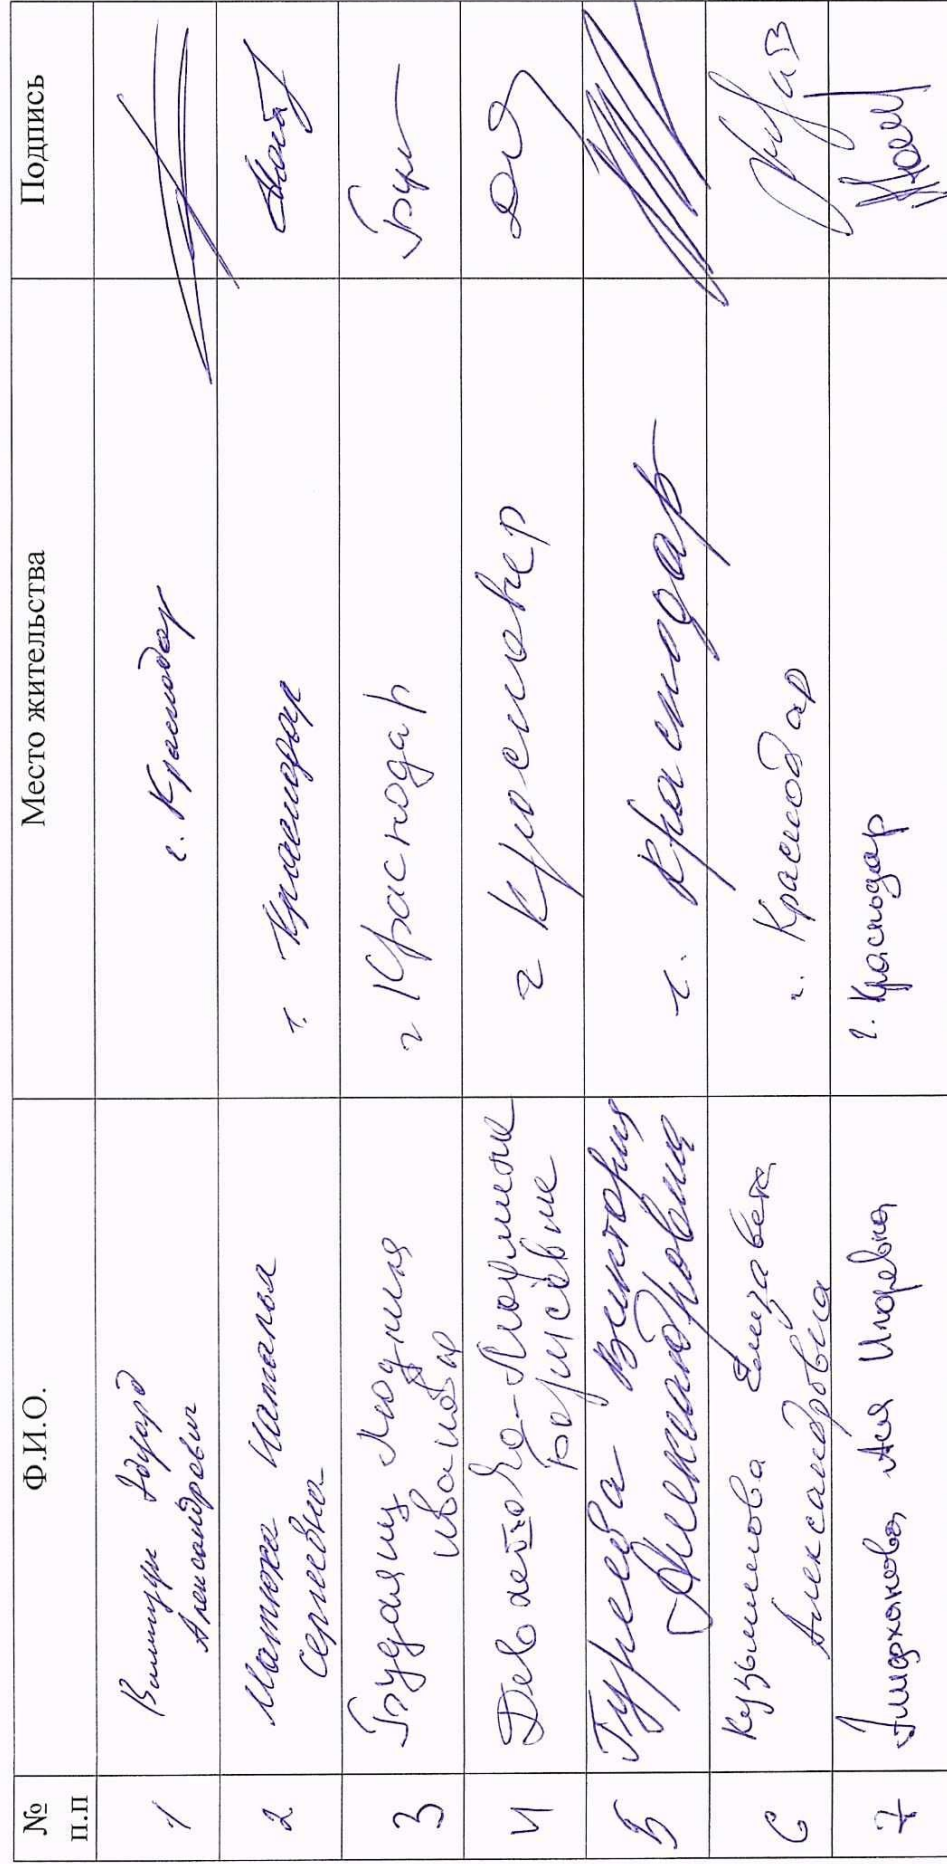 № п.п Ф.И.О. Место жительства Подпись
1 Эдуард Александрович г. Краснодар
2 Наталья Сергеевна г. Краснодар
3 Людмила Ивановна г Краснодар
4 Борисовна г Краснодар
5 Гуреева Виктория Александровна г. Краснодар
6 Кузьминова Елизавета Александровна г. Краснодар
7 Ася Игоревна г. Краснодар